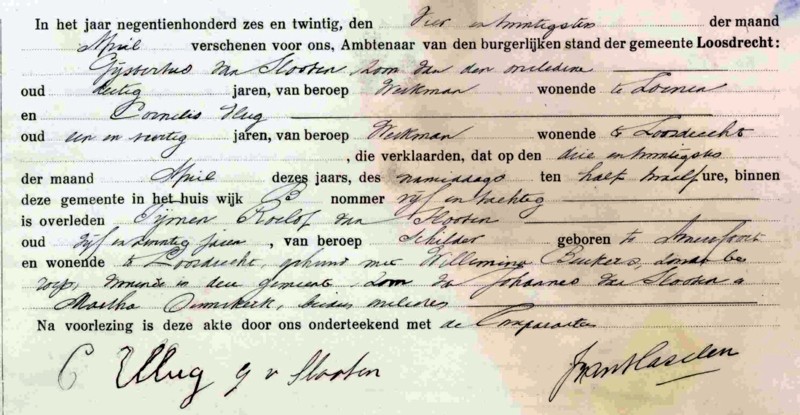 In het jaar negentienhonderd zes en twintig, den vier en twintigsten der maand
April verschenen voor ons, Ambtenaar van den burgerlijken stand der gemeente Loosdrecht:
Gijsbertus van Slooten, zoon van den overledene
oud dertig jaren, van beroep Werkman wonende te Loenen
en Cornelis Vlug
oud een en veertig jaren, van beroep Werkman wonende te Loosdrecht
, die verklaarden, dat op den drie en twintigsten
der maand April dezes jaars, des namiddags ten half twaalf ure, binnen
deze gemeente in het huis wijk nommer vijf en tachtig
is overleden Tijmen Roelof van Slooten
oud vijf en zeventig jaren, van beroep Schilder geboren te Amersfoort
en wonende te Loosdrecht, gehuwd met Willemina Beukers, zonder be
roep, wonende in deze gemeente, zoon van Johannes van Slooten en
Martha, beiden overleden
Na voorlezing is deze akte door ons onderteekend met de Comparanten
C Vlug G v Slooten